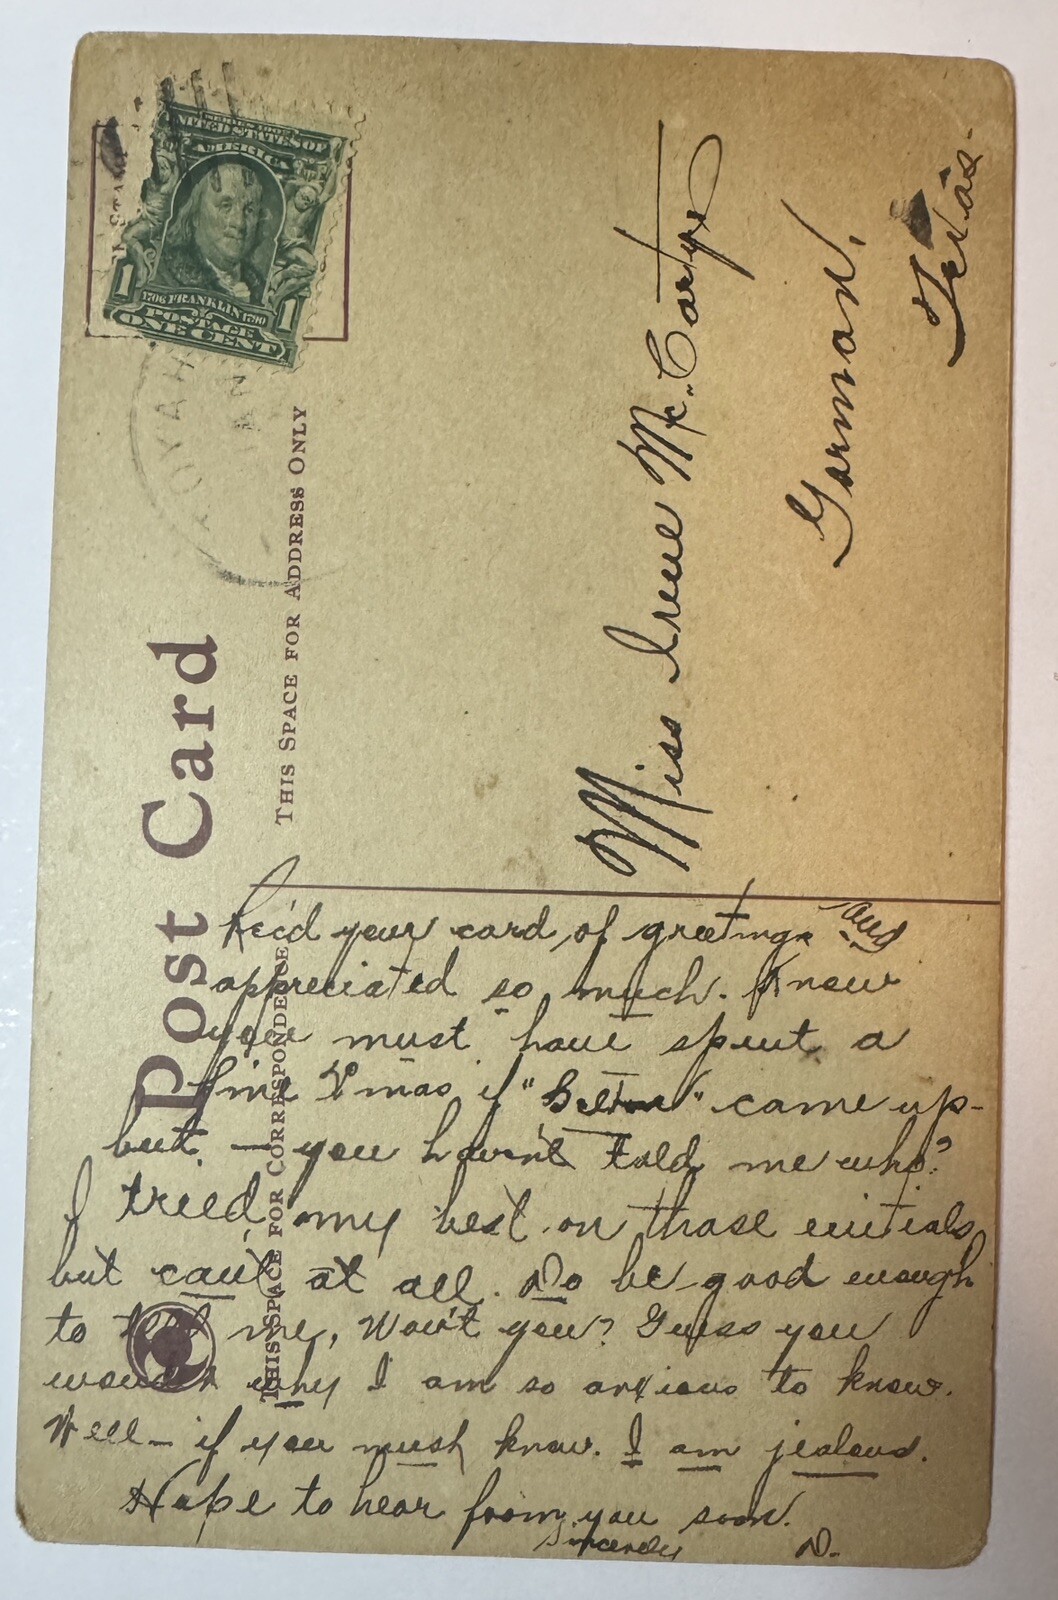 SERIES 1902
UNITED STATES OF
AMERICA
1706 FRANKLIN 1790
1 1
POSTAGE
ONE CENT
TOYAH
JAN
Post Card
THIS SPACE FOR ADDRESS ONLY
THIS SPACE FOR CORRESPONDENCE
Miss Irene McCartye
Gorman,
Texas-
Rec'd your card, of greetings and
appreciated so much. Know
you must have spent a
fine Xmas if "Belton" came up-
but, — you haven't told me who?
I tried my best on those initials
but can't at all. Do be good enough
to tell me, Won't you? Guess you
wonder why I am so anxious to know.
Well— if you must know. I am jealous.
Hope to hear from you soon.
Sincerely D.